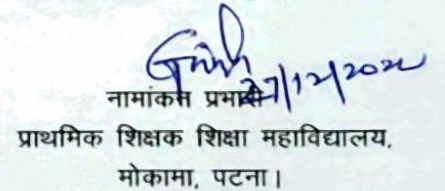 27/12/2022
नामांकन प्रभारी
प्राथमिक शिक्षक शिक्षा महाविद्यालय,
मोकामा, पटना।